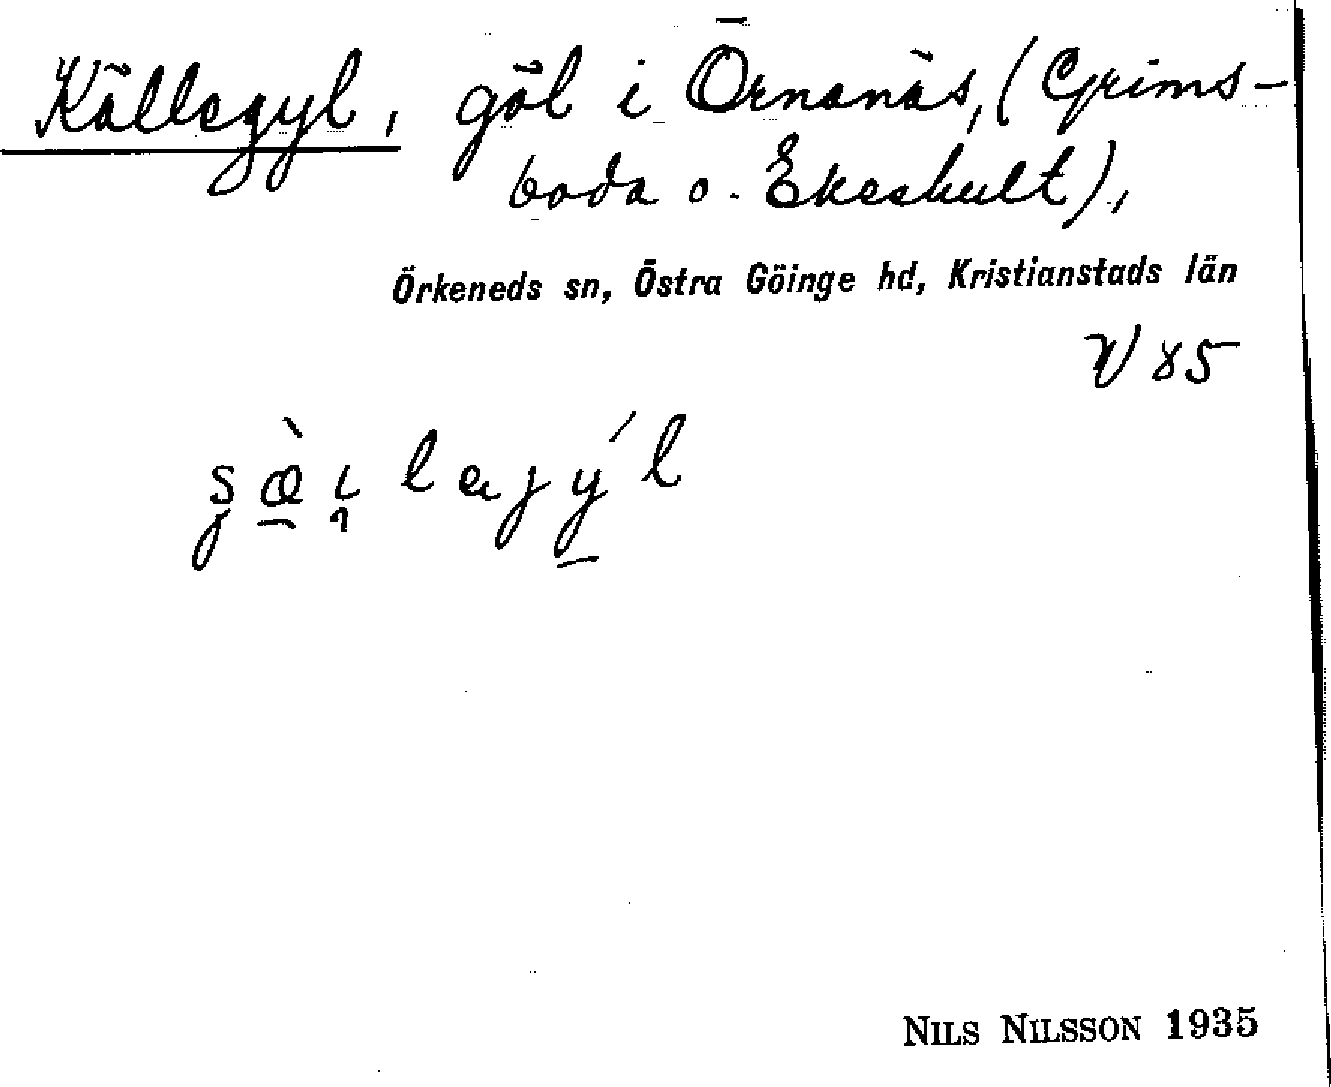 Källegyl, göl i Örnanäs, (Grims-
boda o. Ekeshult),
Örkeneds sn, Östra Göinge hd, Kristianstads län
V 85
NILS NILSSON 1935